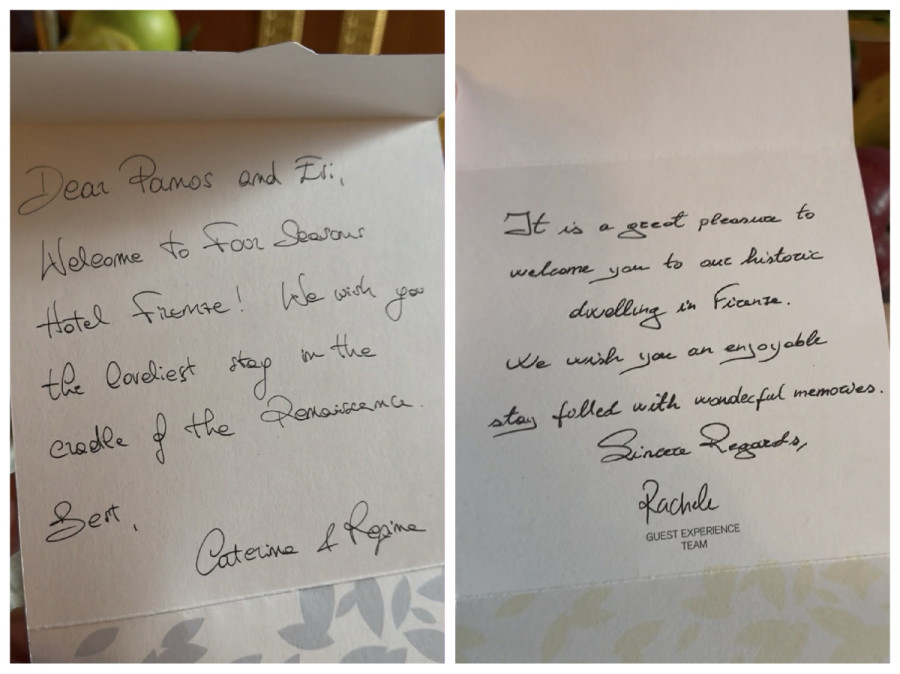 Dear Panos and Evi,
Welcome to Four Seasons
Hotel Firenze! We wish you
the loveliest stay in the
cradle of the Renaissance.
Best,
Caterina & Regina
It is a great pleasure to
welcome you to our historic
dwelling in Firenze.
We wish you an enjoyable
stay filled with wonderful memories.
Sincere Regards,
Rachele
GUEST EXPERIENCE
TEAM